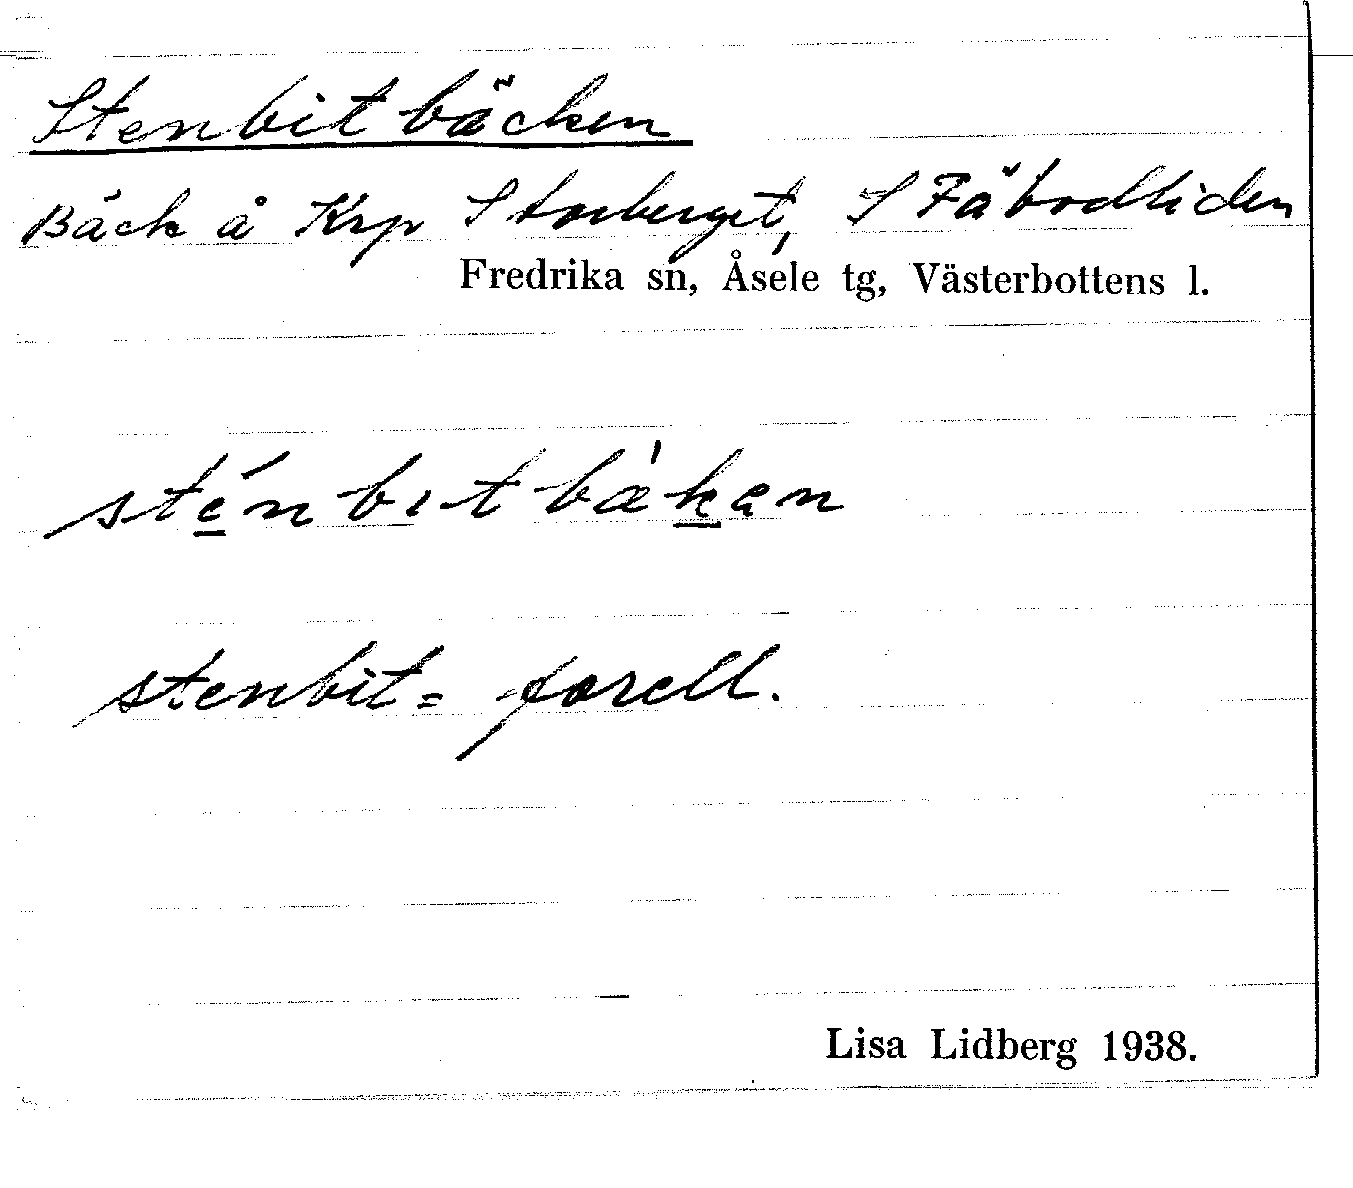 Stenbitbäcken
Bäck å Krp Storberget, S Fäbodliden
Fredrika sn, Åsele tg, Västerbottens l.
sténbıtbä̀kan
stenbit = forell.
Lisa Lidberg 1938.